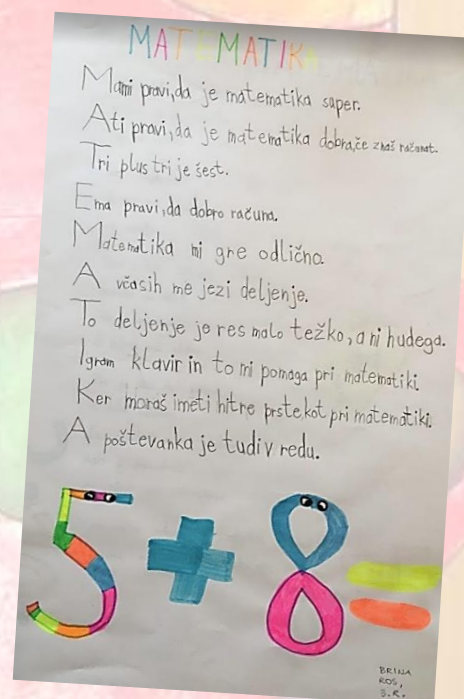 MATEMATIKA
Mami pravi, da je matematika super.
Ati pravi, da je matematika dobra, če znaš računat.
Tri plus tri je šest.
Ema pravi, da dobro računa.
Matematika mi gre odlično.
A včasih me jezi deljenje.
To deljenje je res malo težko, a ni hudega.
Igram klavir in to mi pomaga pri matematiki.
Ker moraš imeti hitre prste kot pri matematiki.
A poštevanka je tudi v redu.
5 + 8 =
BRINA
ROS,
3.R.